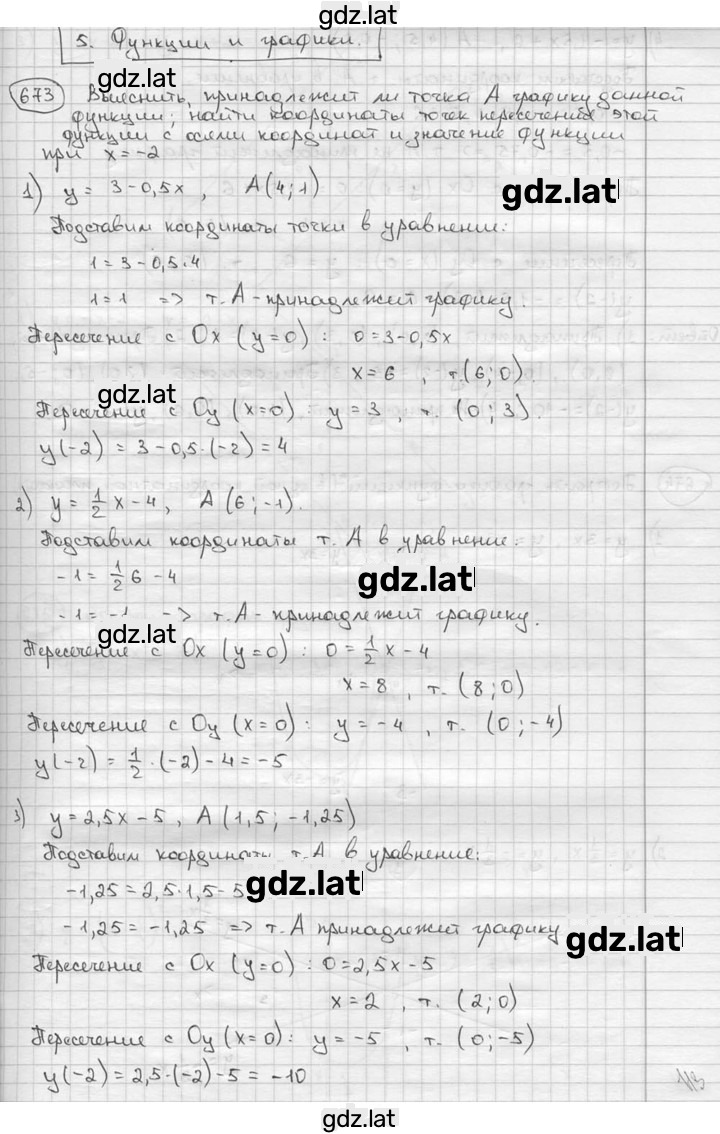 gdz.lat
5. Функции и графики.
gdz.lat
673 Выяснить, принадлежит ли точка A графику данной
функции; найти координаты точек пересечения этой
функции с осями координат и значение функции
при x = -2
1) y = 3 - 0,5x , A(4; 1)
gdz.lat
Подставим координаты точки в уравнении:
1 = 3 - 0,5·4
1 = 1 => т. A - принадлежит графику.
Пересечение с Ox (y=0) : 0 = 3 - 0,5x
x = 6 , т.(6; 0).
gdz.lat
Пересечение с Oy (x=0) : y = 3 , т. (0; 3).
y(-2) = 3 - 0,5·(-2) = 4
2) y = 1/2 x - 4, A (6; -1).
Подставим координаты т. A в уравнение:
-1 = 1/2 6 - 4
gdz.lat
-1 = -1 -> т. A - принадлежит графику.
gdz.lat
Пересечение с Ox (y=0) : 0 = 1/2 x - 4
x = 8 , т. (8; 0)
Пересечение с Oy (x=0) : y = -4 , т. (0; -4)
y(-2) = 1/2 ·(-2) - 4 = -5
3) y = 2,5x - 5, A(1,5; -1,25)
Подставим координаты т. A в уравнение:
-1,25 = 2,5·1,5 - 5
gdz.lat
-1,25 = -1,25 => т. A принадлежит графику
gdz.lat
Пересечение с Ox (y=0) : 0 = 2,5x - 5
x = 2 , т. (2; 0)
Пересечение с Oy (x=0) : y = -5 , т. (0; -5)
y(-2) = 2,5·(-2) - 5 = -10
113
gdz.lat